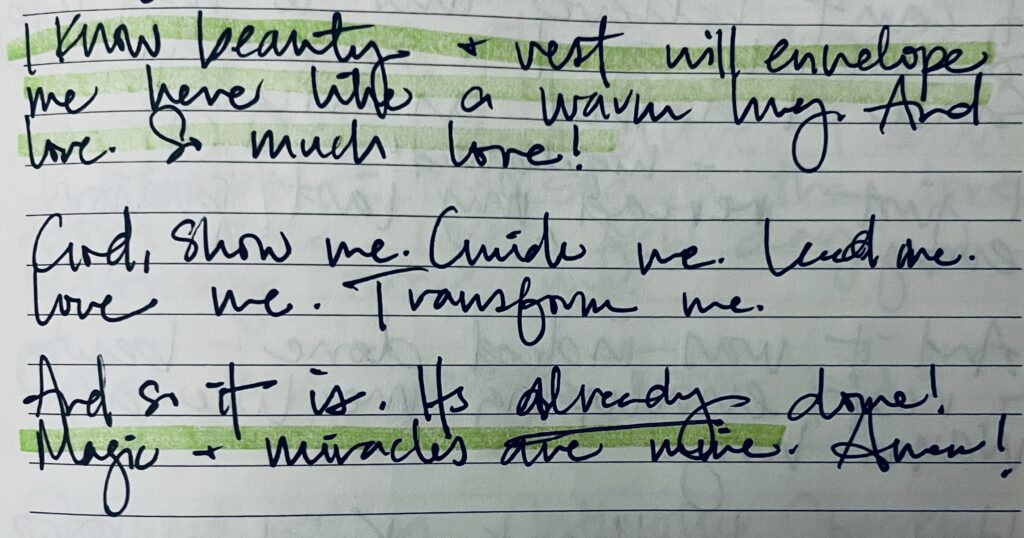 I know beauty + rest will envelope
me here like a warm hug. And
love. So much love!
God, show me. Guide me. Lead me.
Love me. Transform me.
And so it is. Its already done!
Magic + miracles are mine. Amen!